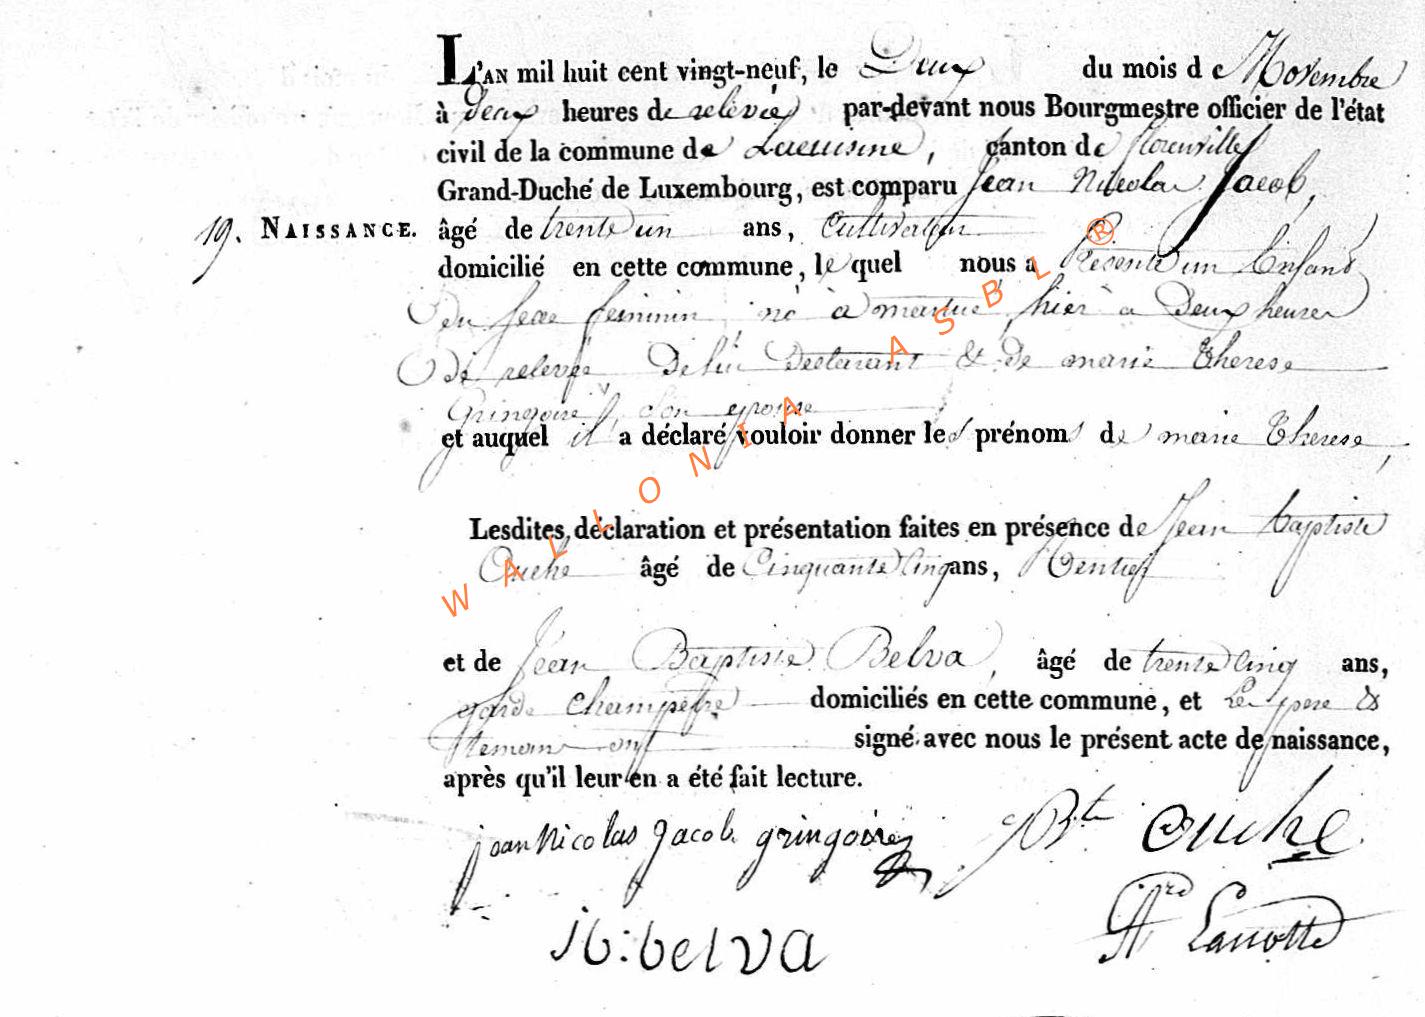 L'AN mil huit cent vingt-neuf, le Deux du mois de Novembre
à deux heures de relevée par-devant nous Bourgmestre officier de l'état
civil de la commune de Lacuisine, canton de florenville
Grand-Duché de Luxembourg, est comparu Jean Nicolas Jacob,
19. NAISSANCE. âgé de trente un ans, Cultivateur
domicilié en cette commune, le quel nous a Présenté un Enfant
du sexe feminin, né à martué, hier à Deux heures
De relevée De lui Déclarant & de marie Therese
Gringoire, son epouse
et auquel il a déclaré vouloir donner les prénoms de marie Therese,
Lesdites déclaration et présentation faites en présence de Jean baptiste
Ouché âgé de Cinquante Cinq ans, Rentier
et de Jean Baptiste Belva, âgé de trente cinq ans,
garde Champêtre domiciliés en cette commune, et Le pere &
temoins ont signé avec nous le présent acte de naissance,
après qu'il leur en a été fait lecture.
jean Nicolas Jacob gringoire JBte Ouche
jb: belva Lanotte
WALLONIA ASBL ®